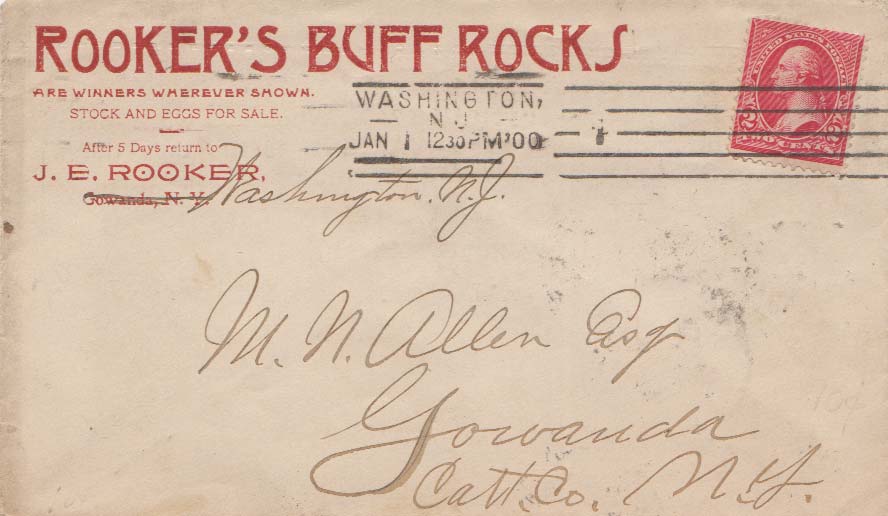 ROOKER'S BUFF ROCKS
ARE WINNERS WHEREVER SHOWN.
STOCK AND EGGS FOR SALE.
After 5 Days return to
J. E. ROOKER,
Gowanda, N. Y. Washington, N.J.
WASHINGTON,
N.J.
JAN 1 1230PM'00
UNITED STATES POSTAGE
2 2
TWO CENTS
M. N. Allen Esq
Gowanda
Catt. Co. N.Y.